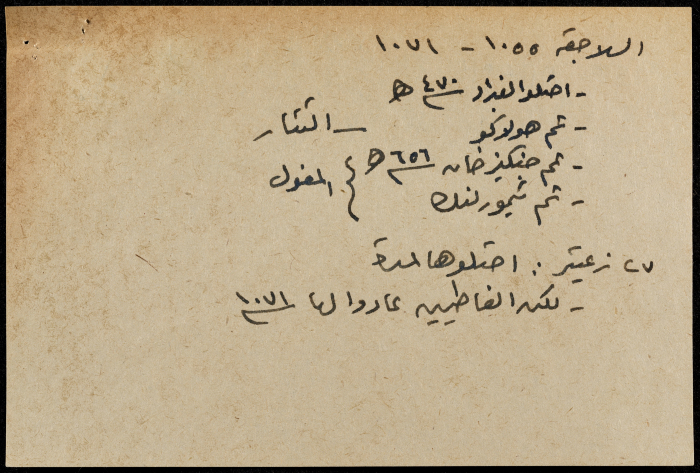 السلاجقه ١٠٥٥ - ١٠٧١
- احتلوا بغداد ٤٧٠ هـ
- ثم هولاكو - التتار
- ثم جنكيز خان ٦٥٦ هـ } المغول
- ثم تيمورلنك
٢٧ زعيتر : احتلوها لمدة
- لكن الفاطميين عادوا لها ١٠٧١